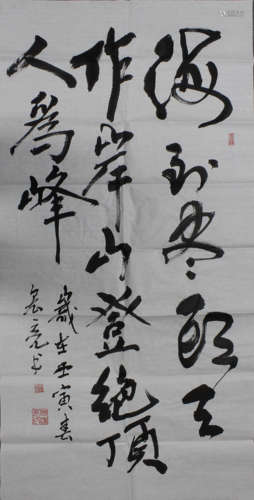 海到尽頭天
作岸山登絕頂
人爲峰
歲在壬寅春